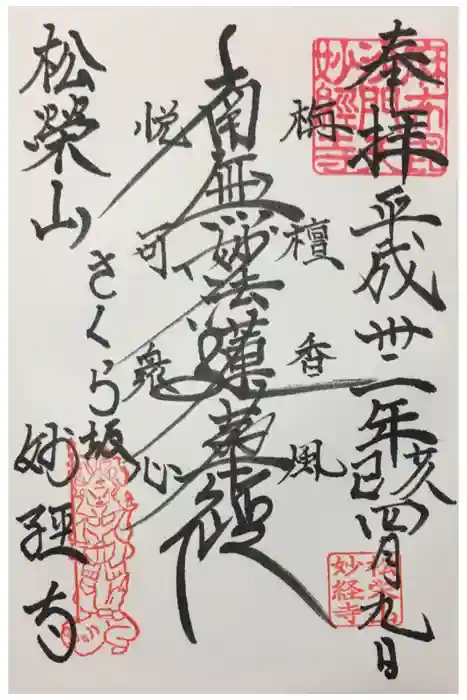 奉拝 平成卅一年己亥四月九日
栴檀香風
南無妙法蓮華経
悦可衆心
松榮山
さくら坂
妙經寺
妙経寺
松栄山
妙経寺